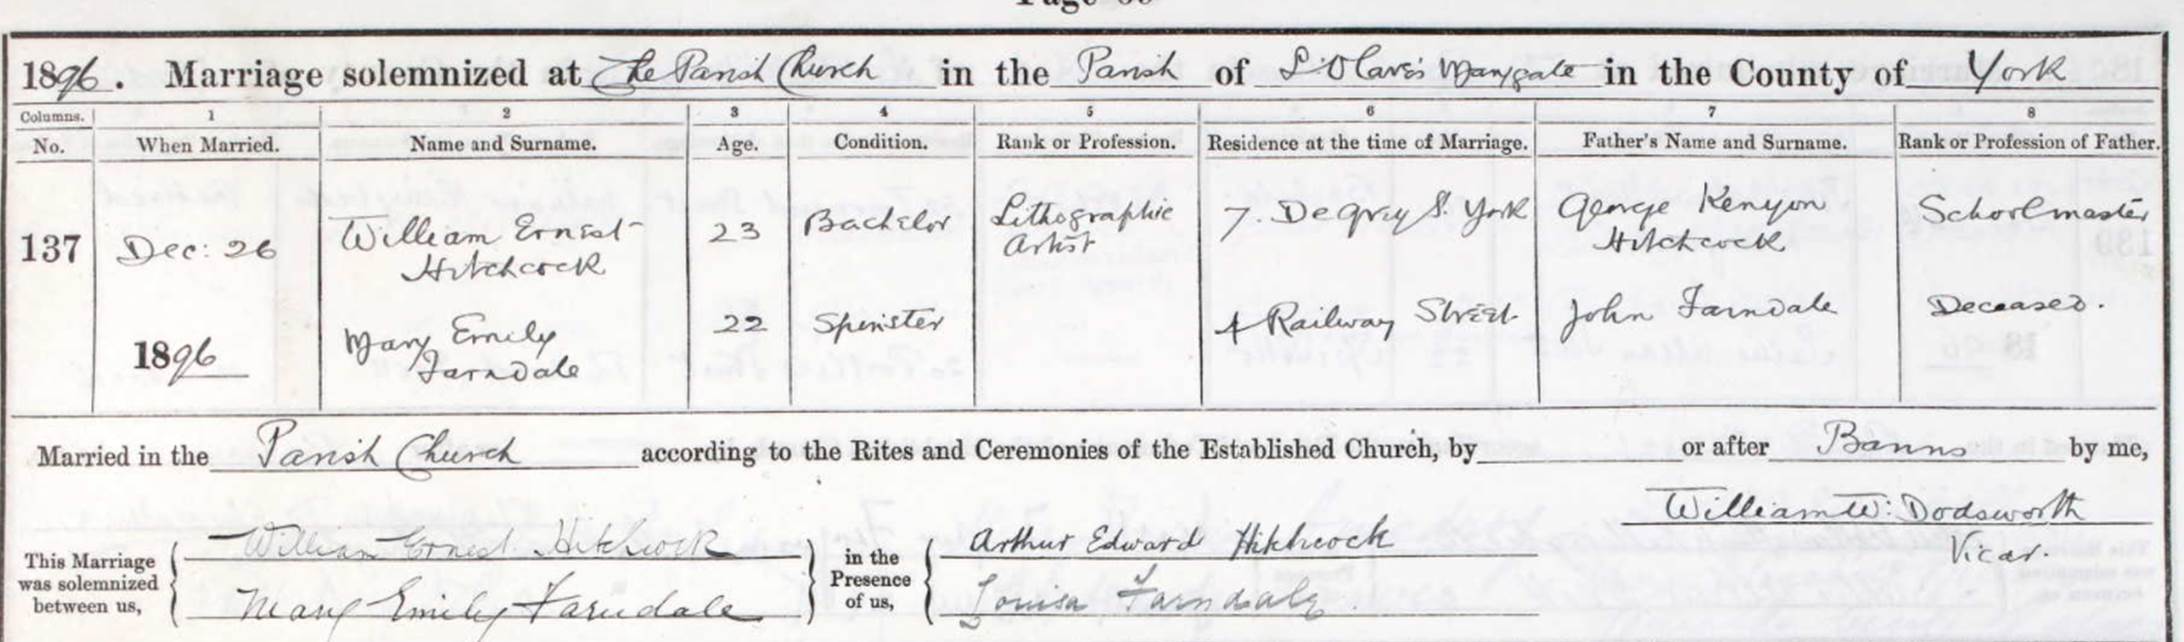 1896. Marriage solemnized at The Parish Church in the Parish of S. Olave's Marygate in the County of York
Columns. 1 2 3 4 5 6 7 8
No. When Married. Name and Surname. Age. Condition. Rank or Profession. Residence at the time of Marriage. Father's Name and Surname. Rank or Profession of Father.
137 Dec: 26 William Ernest 23 Bachelor Lithographic 7. De Grey S. York George Kenyon Schoolmaster
Hitchcock Artist Hitchcock
1896 Mary Emily 22 Spinster 4 Railway Street John Farndale Deceased.
Farndale
Married in the Parish Church according to the Rites and Ceremonies of the Established Church, by or after Banns by me,
William W: Dodsworth
Vicar.
This Marriage was solemnized between us, William Ernest Hitchcock in the Presence of us, Arthur Edward Hitchcock
Mary Emily Farndale Louisa Farndale